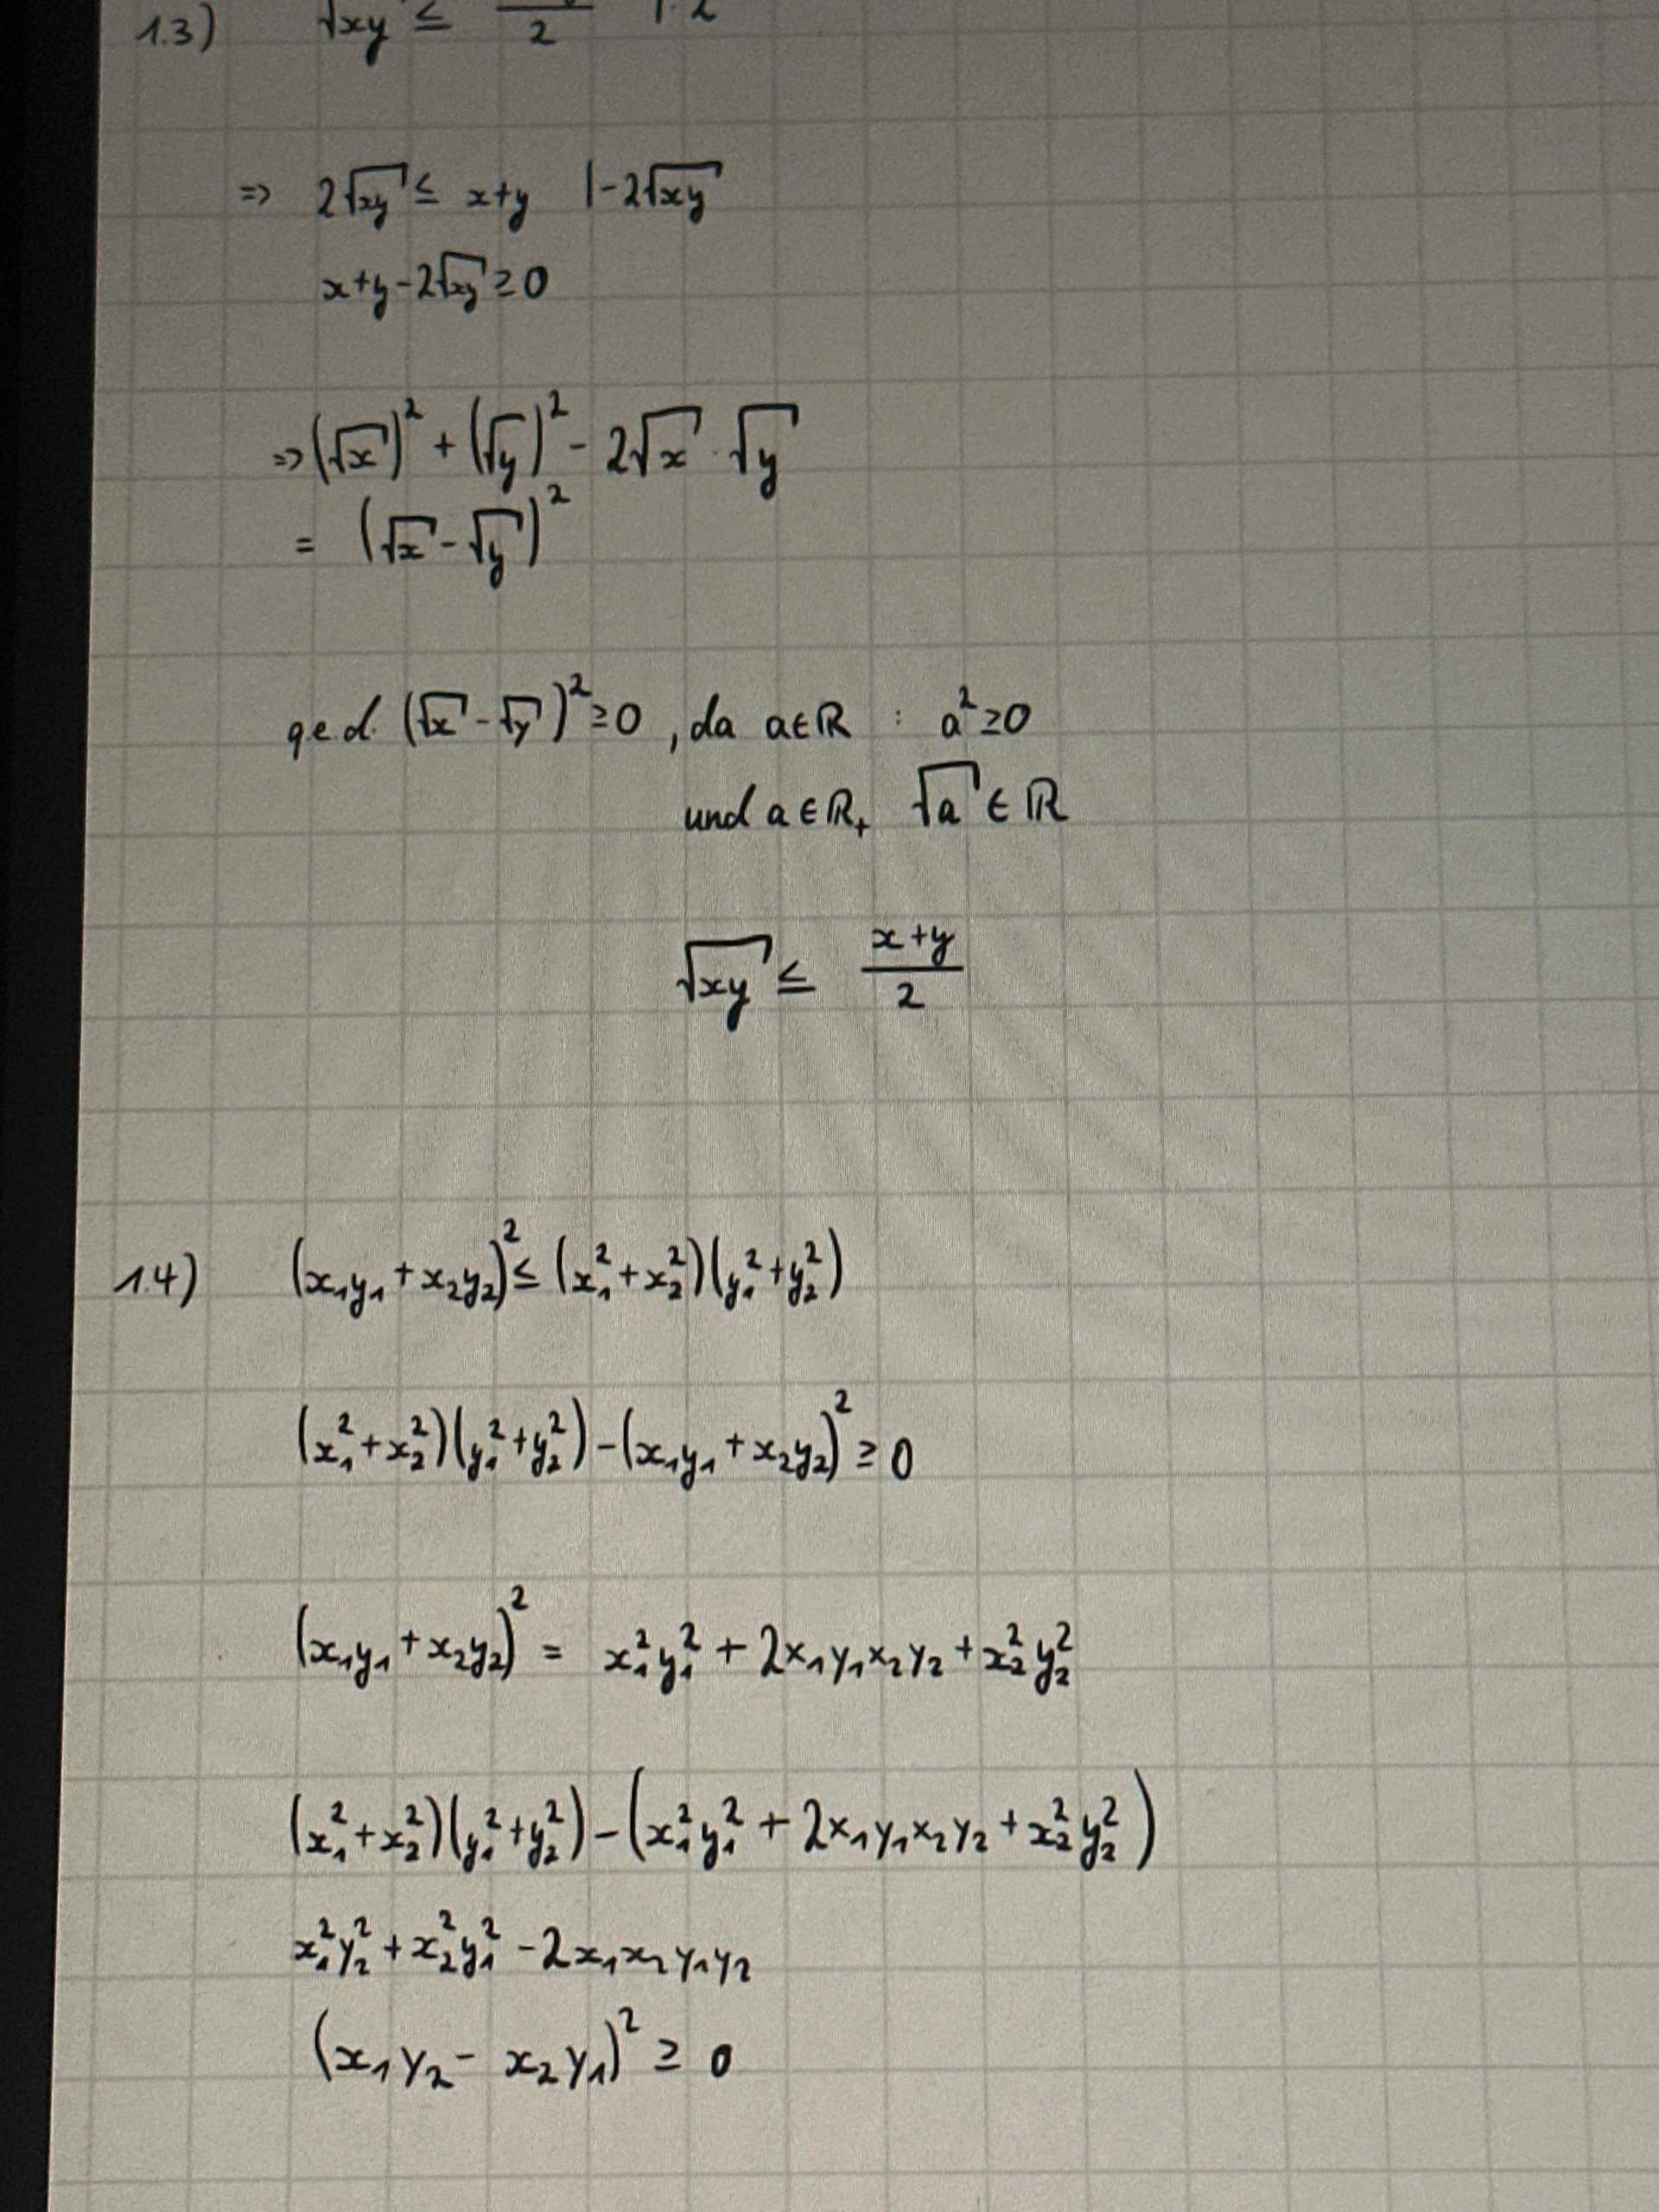 1.3) √xy ≤ /2 |·2
=> 2√xy ≤ x+y |-2√xy
x+y-2√xy ≥ 0
=> (√x)² + (√y)² - 2√x · √y
= (√x - √y)²
qed. (√x - √y)² ≥ 0, da a∈ℝ : a² ≥ 0
und a∈ℝ₊ √a ∈ ℝ
√xy ≤ (x+y)/2
1.4) (x₁y₁ + x₂y₂)² ≤ (x₁² + x₂²)(y₁² + y₂²)
(x₁² + x₂²)(y₁² + y₂²) - (x₁y₁ + x₂y₂)² ≥ 0
(x₁y₁ + x₂y₂)² = x₁²y₁² + 2x₁y₁x₂y₂ + x₂²y₂²
(x₁² + x₂²)(y₁² + y₂²) - (x₁²y₁² + 2x₁y₁x₂y₂ + x₂²y₂²)
x₁²y₂² + x₂²y₁² - 2x₁x₂y₁y₂
(x₁y₂ - x₂y₁)² ≥ 0